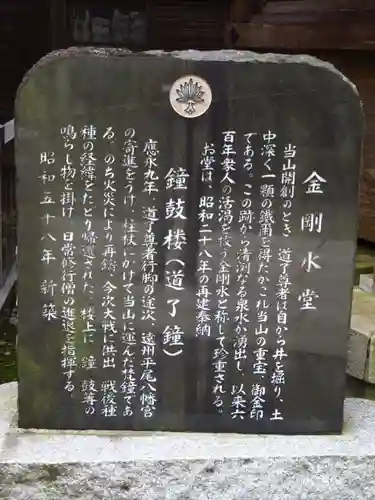 金剛水堂
当山開創のとき、道了尊者は自から井を掘り、土
中深く一顆の鐵印を得たがこれ当山の重宝、御金印
である。この跡から清冽なる泉水が湧出し、以来六
百年衆人の活渇を扱う金剛水と称して珍重される。
お堂は、昭和二十八年の再建奉納
鐘鼓楼(道了鐘)
應永九年、道了尊者行脚の途次、遠州平尾八幡宮
の寄進をうけ、柱杖にかけて当山に運んだ梵鐘であ
る。のち火災により再鋳、今次大戦に供出、戦後種
種の経緯をたどり帰還された。楼上に、鐘、鼓等の
鳴らし物を掛け、日常修行僧の進退を指揮する。
昭和五十八年 新築